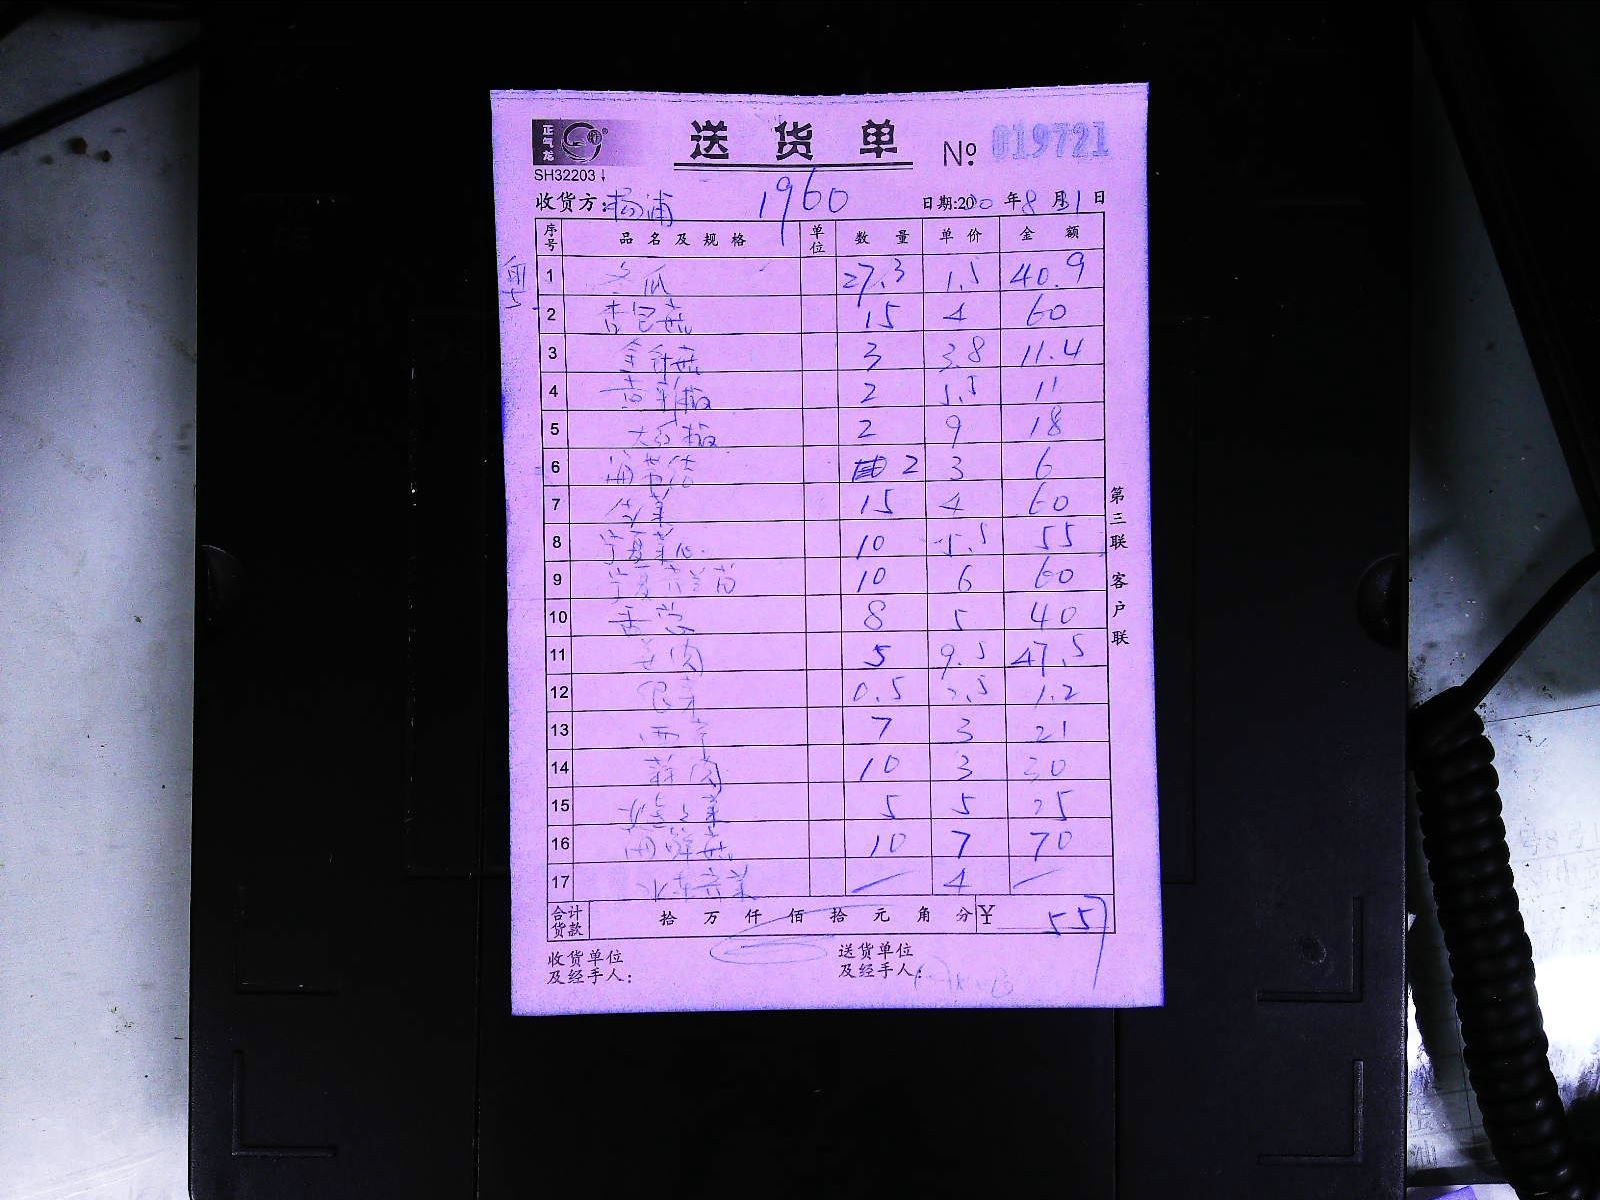 正气龙
送货单 No 019721
SH32203
收货方:杨浦 1960 日期:2020年8月31日
序号 品名及规格 单位 数量 单价 金额
1 冬瓜 27.3 1.5 40.9
2 杏包菇 15 4 60
3 金针菇 3 3.8 11.4
4 黄彩椒 2 5.5 11
5 大红椒 2 9 18
6 2 3 6
7 15 4 60
8 宁夏菜心 10 5.5 55
9 宁夏芥兰苗 10 6 60
10 香葱 8 5 40
11 姜肉 5 9.5 47.5
12 0.5 2.5 1.2
13 西芹 7 3 21
14 蒜肉 10 3 30
15 5 5 25
16 海鲜菇 10 7 70
17 4
合计货款 拾万仟佰拾元角分 ¥ 557
收货单位及经手人:
送货单位及经手人:
第三联 客户联